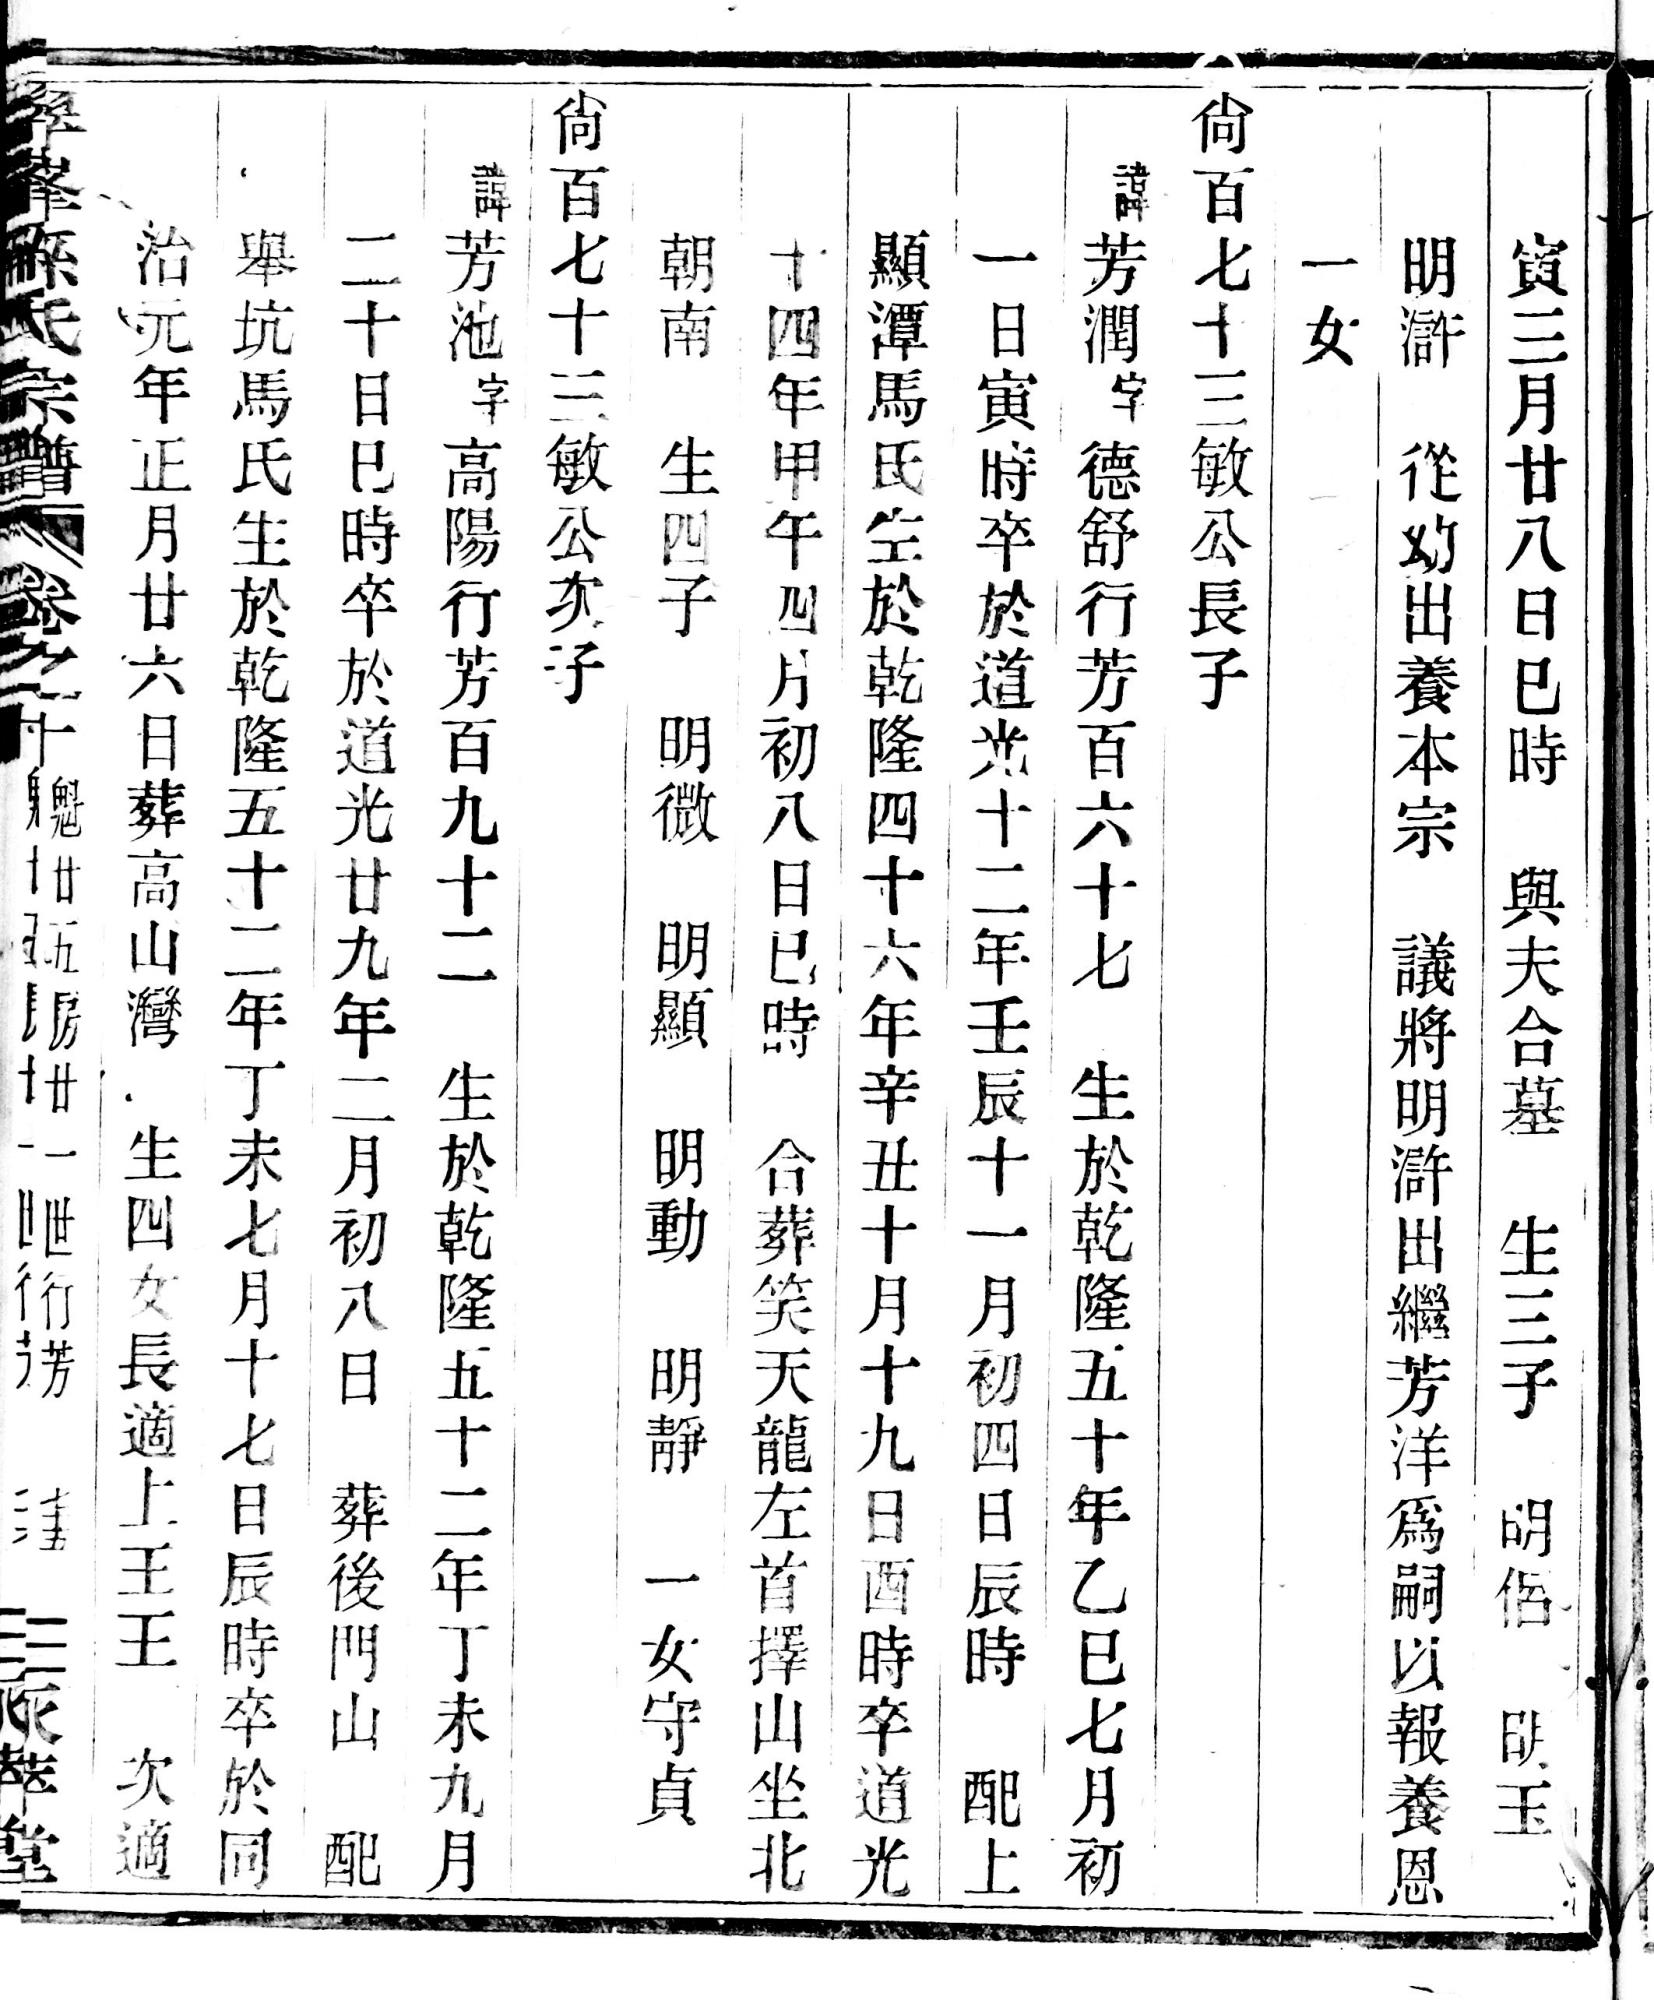 寅三月廿八日巳時　與夫合墓　生三子　明侶　明玉
明滸　從幼出養本宗　議將明滸出繼芳洋爲嗣以報養恩
一女
尙百七十三敏公長子
諱芳潤字德舒行芳百六十七　生於乾隆五十年乙巳七月初
一日寅時卒於道光十二年壬辰十一月初四日辰時　配上
顯潭馬氏生於乾隆四十六年辛丑十月十九日酉時卒道光
十四年甲午四月初八日巳時　合葬笑天龍左首擇山坐北
朝南　生四子　明微　明顯　明動　明靜　一女守貞
尙百七十三敏公次子
諱芳池字高陽行芳百九十二　生於乾隆五十二年丁未九月
二十日巳時卒於道光廿九年二月初八日　葬後門山　配
舉坑馬氏生於乾隆五十二年丁未七月十七日辰時卒於同
治元年正月廿六日葬高山灣　生四女長適上王王　次適
氏宗譜 卷之十 魁廿五房廿一世行芳 萃堂